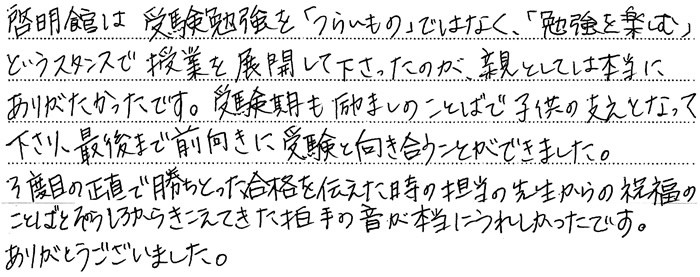 啓明館は 受験勉強を「つらいもの」ではなく、「勉強を楽しむ」
というスタンスで 授業を 展開して下さったのが、親としては本当に
ありがたかったです。受験期も 励ましのことばで 子供の支えとなって
下さり、最後まで前向きに 受験と向き合うことができました。
3度目の正直で勝ちとった合格を伝えた時の担当の先生からの祝福の
ことばとそのうしろからきこえてきた拍手の音が本当にうれしかったです。
ありがとうございました。